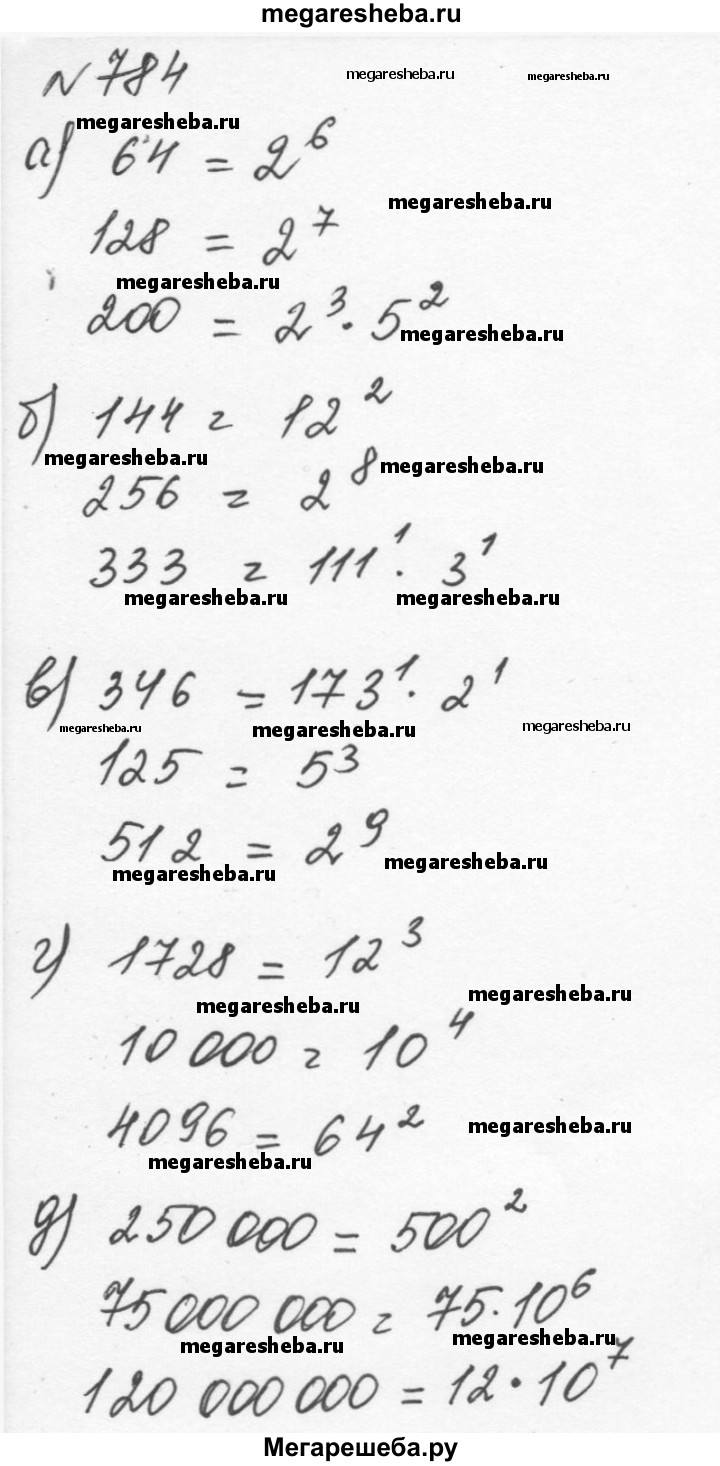 megaresheba.ru
№784
megaresheba.ru megaresheba.ru
megaresheba.ru
а) 64 = 2⁶
megaresheba.ru
128 = 2⁷
megaresheba.ru
200 = 2³ · 5²
megaresheba.ru
б) 144 = 12²
megaresheba.ru megaresheba.ru
256 = 2⁸
333 = 111¹ · 3¹
megaresheba.ru megaresheba.ru
в) 346 = 173¹ · 2¹
megaresheba.ru megaresheba.ru megaresheba.ru
125 = 5³
512 = 2⁹
megaresheba.ru megaresheba.ru
г) 1728 = 12³
megaresheba.ru megaresheba.ru
10 000 = 10⁴
4096 = 64²
megaresheba.ru megaresheba.ru
д) 250 000 = 500²
75 000 000 = 75 · 10⁶
megaresheba.ru megaresheba.ru
120 000 000 = 12 · 10⁷
Мегарешеба.ру